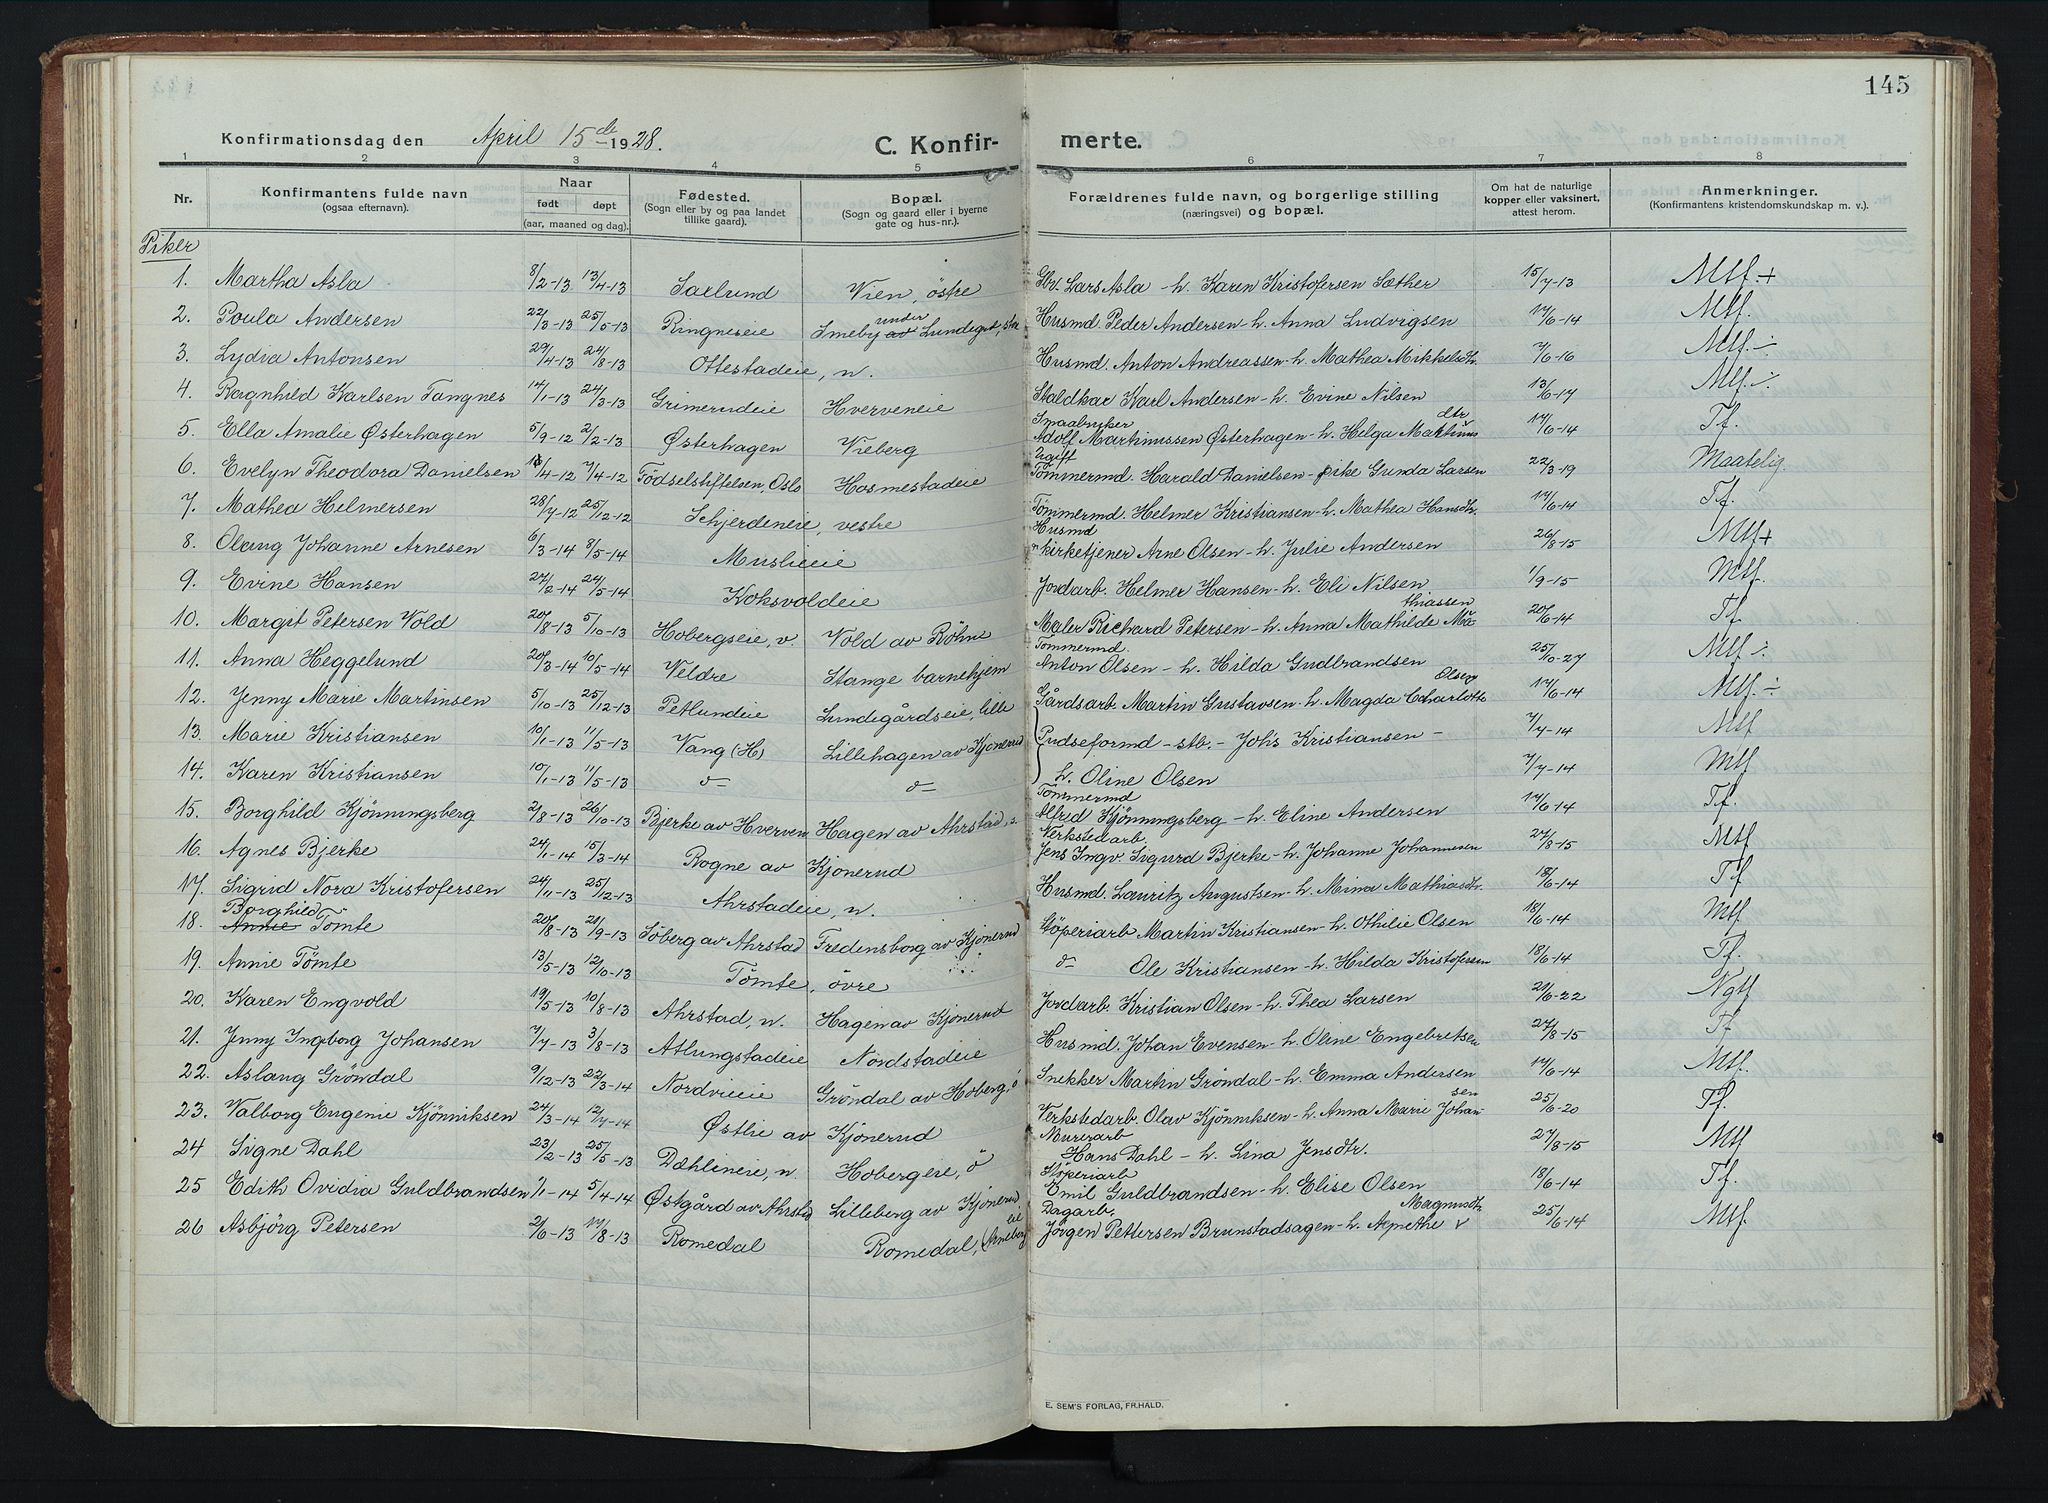 145
Konfirmationsdag den April 15de 1928. C. Konfirmerte.
1 2 3 4 5 6 7 8
Nr. Konfirmantens fulde navn (ogsaa efternavn). Naar født døpt (aar, maaned og dag). Fødested. (Sogn eller by og paa landet tillike gaard). Bopæl. (Sogn og gaard eller i byerne gate og hus-nr.). Forældrenes fulde navn, og borgerlige stilling (næringsvei) og bopæl. Om hat de naturlige kopper eller vaksinert, attest herom. Anmerkninger. (Konfirmantens kristendomskundskap m. v.).
Piker
1. Martha Asla 8/2-13 13/4-13 Saxlund Vien, östre Gbr. Lars Asla - h. Karen Kristofersen Sæther 15/7-13 Mtf. +
2. Poula Andersen 22/3-13 25/5-13 Ringneseie Imeby av under Lundegst, Husmd. Peder Andersen - h. Anna Ludvigsen 17/6-14 Mtf.
3. Lydia Antonsen 29/4-13 24/8-13 Ottestadeie, n. Husmd. Anton Andreassen - h. Mathea Mikkelsdtr. 7/6-16 Mtf. ÷
4. Ragnhild Karlsen Tangnes 14/1-13 24/3-13 Grimerudeie Hverveneie Staldkar Karl Andersen - h. Evine Nilsen 13/6-17 Mtf. ÷
5. Ella Amalie Østerhagen 5/9-12 2/2-13 Østerhagen Vieberg Smaabruker Adolf Martinussen Østerhagen - h. Helga Martinus dtr 17/6-14 Tf.
6. Evelyn Theodora Danielsen 16/4-12 7/4-12 Födselstiftelsen, Oslo Hosmestadeie Ugift Tömmermd. Harald Danielsen - pike Gunda Larsen 22/3-19 Maatelig.
7. Mathea Helmersen 28/7-12 25/12-12 Schjerdeneie, vestre Tömmermd. Helmer Kristiansen - h. Mathea Hansdtr. 17/6-14 Tf.
8. Olaug Johanne Arnesen 6/3-14 8/5-14 Muslieie Husmd n kirketjener Arne Olsen - h. Julie Andersen 26/8-15 Mtf +
9. Evine Hansen 27/2-14 24/5-14 Koksvoldeie Jordarb. Helmer Hansen - h. Eli Nilsen 1/9-15 Mtf.
10. Margit Petersen Vold 20/8-13 5/10-13 Hobergseie, v. Vold av Röhne Maler Richard Petersen - h. Anna Mathilde Mathiassen 20/6-14 Tf
11. Anna Heggelund 20/3-14 10/5-14 Veldre Stange barnehjem Tömmermd. Anton Olsen - h. Hilda Gudbrandsen 25/10-27 Mtf ÷
12. Jenny Marie Martinsen 5/10-13 25/12-13 Petlundeie Lundegårdseie, lille Gårdsarb. Martin Gustavsen - h. Magda Charlotte Olsen 17/6-14 Mtf. ÷
13. Marie Kristiansen 10/1-13 11/5-13 Vang (H) Lillehagen av Kjönerud Pudseformd - stb. - Johs Kristiansen - 7/7-14 Mtf
14. Karen Kristiansen 10/1-13 11/5-13 d- d- h. Oline Olsen 7/7-14 Mtf
15. Borghild Kjönningsberg 2/8-13 26/10-13 Bjerke av Hverven Hagen av Ahrstad, s. Tömmermd Alfred Kjönningsberg - h. Eline Andersen 17/6-14 Tf.
16. Agnes Bjerke 24/1-14 15/3-14 Rogne av Kjönerud Verkstedarb Jens Ingv. Sigurd Bjerke - h. Johanne Johannesen 27/8-15 Mtf
17. Sigrid Nora Kristofersen 24/11-13 25/12-13 Ahrstadeie, n. Husmd. Lauritz Augustsen - h. Mina Mathiasdtr. 18/6-14 Tf
18. Annie Borghild Tömte 20/8-13 21/9-13 Söberg av Ahrstad Fredensborg av Kjönerud Stöperiarb Martin Kristiansen - h. Othilie Olsen 18/6-14 Mtf
19. Annie Tömte 13/5-13 12/10-13 Tömte, övre d- Ole Kristiansen - h. Hilda Kristofersen 18/6-14 Tf.
20. Karen Engvold 19/5-13 10/8-13 Ahrstad, n. Hagen av Kjönerud Jordarb. Kristian Olsen - h. Thea Larsen 21/6-22 Ngtf
21. Jenny Ingeborg Johansen 7/7-13 3/8-13 Atlungstadeie Nordstadeie Husmd. Johan Evensen - h. Oline Engebretsen 27/8-15 Tf
22. Aslaug Gröndal 9/12-13 22/3-14 Nordvieie Gröndal av Hoberg, ö Snekker Martin Gröndal - h. Emma Andersen 17/6-14 Mtf.
23. Valborg Eugenie Kjönniksen 24/3-14 12/7-14 Østlie av Kjönerud Verkstedarb. Olav Kjönniksen - h. Anna Marie Johansen 25/6-20 Tf.
24 Signe Dahl 23/2-13 25/5-13 Dæhlineie, n. Hobergeie, ö Murerarb Hans Dahl - h. Lina Jensdtr. 27/8-15 Mtf
25 Edith Ovidia Guldbrandsen 7/1-14 5/4-14 Østgård av Ahrstad Lilleberg av Kjönerud Stöperiarb Emil Guldbrandsen - h. Elise Olsen 18/6-14 Tf.
26 Asbjörg Petersen 2/6-13 17/8-13 Romedal Romedal, (Arneberg Dagarb. Jörgen Pettersen Brunstadsagen - h. Agnethe Magnusdtr 25/6-14 Mtf.
E. SEM'S FORLAG, FR.HALD.